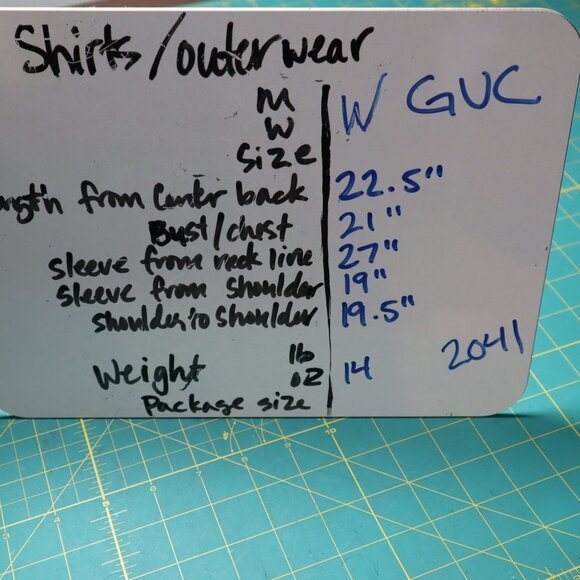 Shirts/outerwear
M W GUC
W
Size
ength from Center back 22.5"
Bust/chest 21"
sleeve from neck line 27"
sleeve from shoulder 19"
shoulder to shoulder 19.5"
lb 2041
Weight oz 14
Package size